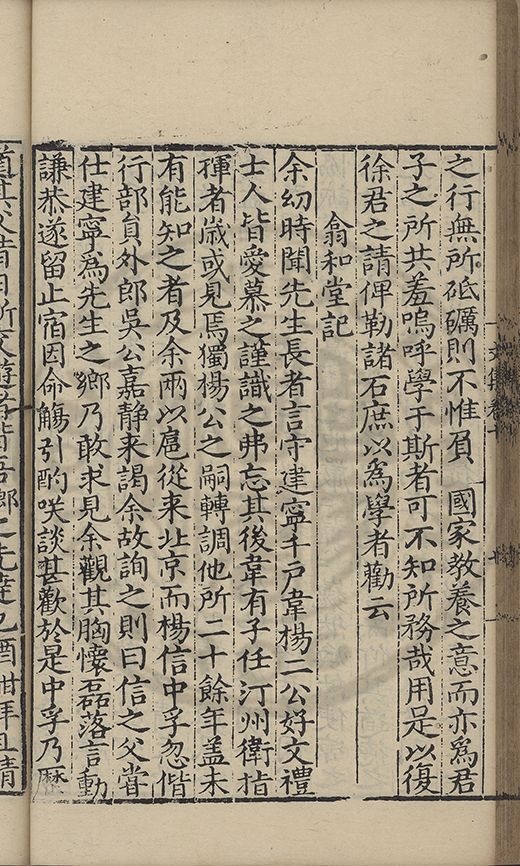 之行無所砥礪則不惟負　國家教養之意而亦爲君
子之所共羞嗚呼學于斯者可不知所務哉用是以復
徐君之請俾勒諸石庶以爲學者勸云
翕和堂記
余幼時聞先生長者言守建寧千戶韋楊二公好文禮
士人皆愛慕之謹識之弗忘其後韋有子任汀州衛指
揮者嵗或見焉獨楊公之嗣轉調他所二十餘年葢未
有能知之者及余兩以扈從来北京而楊信中孚忽偕
行部貟外郎吳公嘉靜来謁余故詢之則曰信之父甞
仕建寧爲先生之鄉乃敢求見余觀其胸懷磊落言動
謙恭遂留止宿因命觴引酌咲談甚歡於是中孚乃歷
道其父昔日所交遊者皆吾鄉之先達已酒酣拜且請